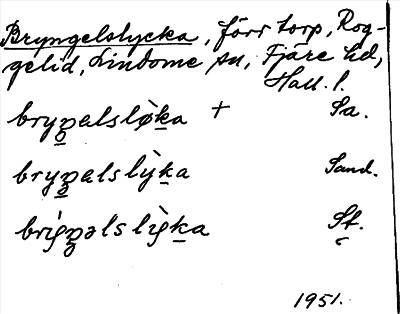 Bryngelslycka, förr torp, Rog-
gelid, Lindome sn, Fjäre hd,
Hall. l.
bryŋəlsløka + Sa.
bryŋəlslỳka Sand.
briŋəlslika St.
1951.